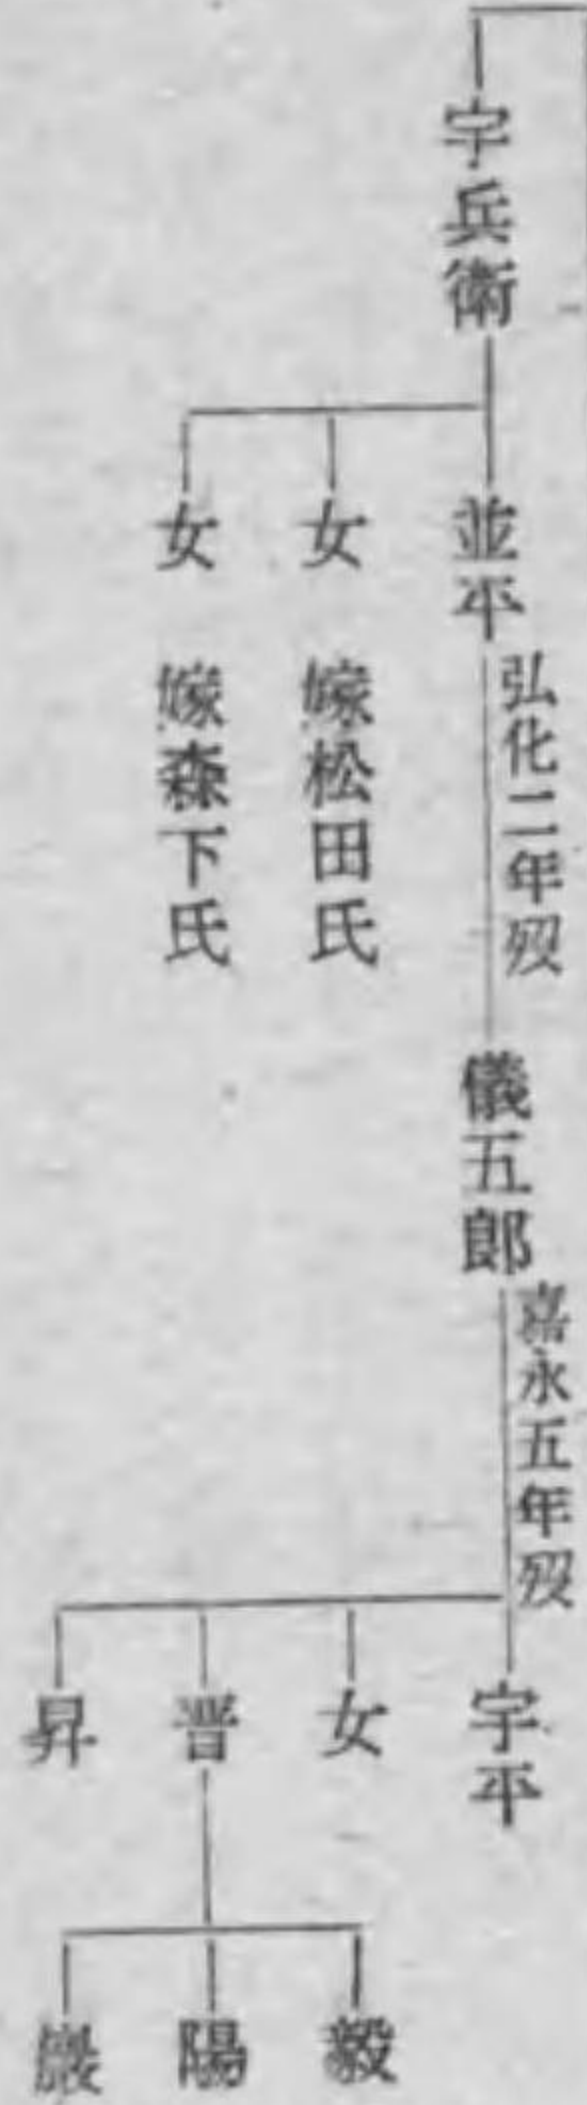 宇兵衛
並平
弘化二年歿
女 嫁松田氏
女 嫁森下氏
儀五郎
嘉永五年歿
宇平
女
晋
昇
毅
陽
巖